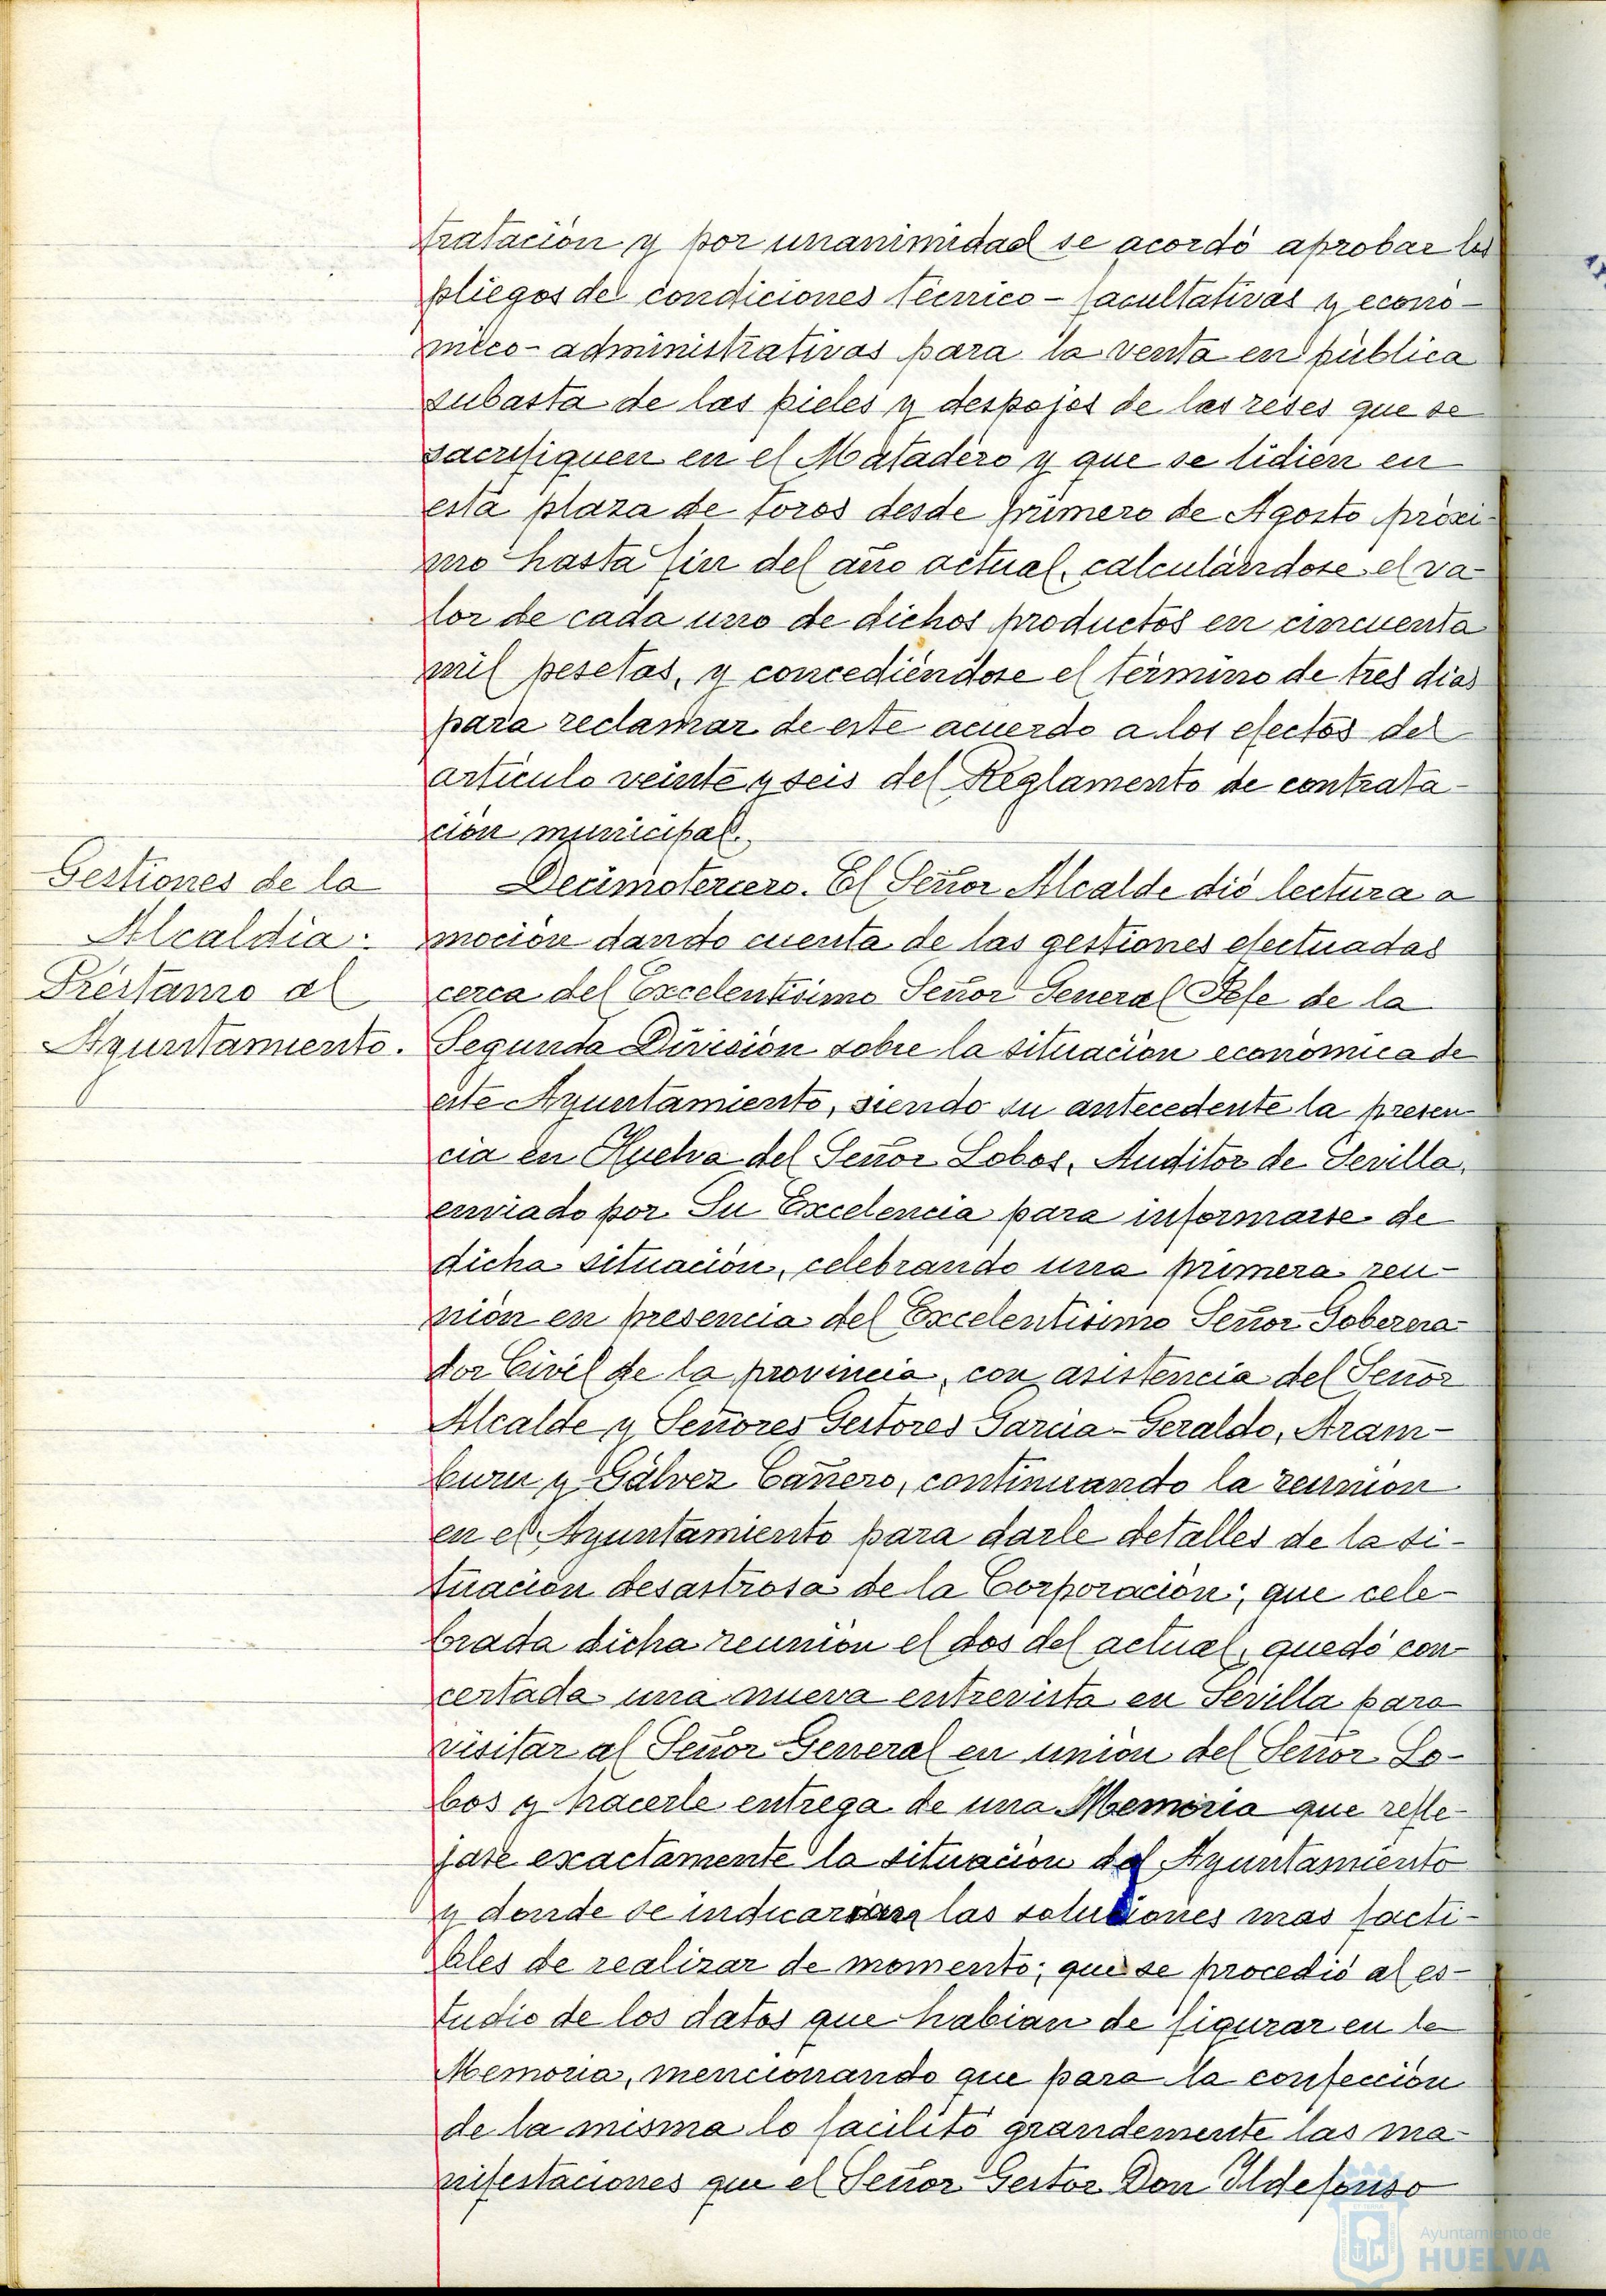 tratación y por unanimidad se acordó aprobar los
pliegos de condiciones técnico-facultativas y econó-
mico-administrativas para la venta en pública
subasta de las pieles y despojos de las reses que se
sacrifiquen en el Matadero y que se lidien en
esta plaza de toros desde primero de Agosto próxi-
mo hasta fin del año actual, calculándose el va-
lor de cada uno de dichos productos en cincuenta
mil pesetas, y concediéndose el término de tres dias
para reclamar de este acuerdo a los efectos del
articulo veinte y seis del Reglamento de contrata-
ción municipal.
Gestiones de la
Alcaldia.
Préstamo al
Ayuntamiento.
Decimotercero. El Señor Alcalde dió lectura a
moción dando cuenta de las gestiones efectuadas
cerca del Excelentisimo Señor General Jefe de la
Segunda División sobre la situación económica de
este Ayuntamiento, siendo su antecedente la presen-
cia en Huelva del Señor Lobos, Auditor de Sevilla,
enviado por Su Excelencia para informarse de
dicha situación, celebrando una primera reu-
nión en presencia del Excelentisimo Señor Goberna-
dor Civil de la provincia, con asistencia del Señor
Alcalde y Señores Gestores Garcia-Geraldo, Aram-
buru y Gálvez Cañero, continuando la reunión
en el Ayuntamiento para darle detalles de la si-
tuación desastrosa de la Corporación; que cele-
brada dicha reunión el dos del actual, quedó con-
certada una nueva entrevista en Sevilla para
visitar al Señor General en unión del Señor Lo-
bos y hacerle entrega de una Memoria que refle-
jase exactamente la situación del Ayuntamiento
y donde se indicarian las soluciones mas facti-
bles de realizar de momento; que se procedió al es-
tudio de los datos que habian de figurar en la
Memoria, mencionando que para la confección
de la misma lo facilitó grandemente las ma-
nifestaciones que el Señor Gestor Don Ildefonso
Ayuntamiento de
HUELVA